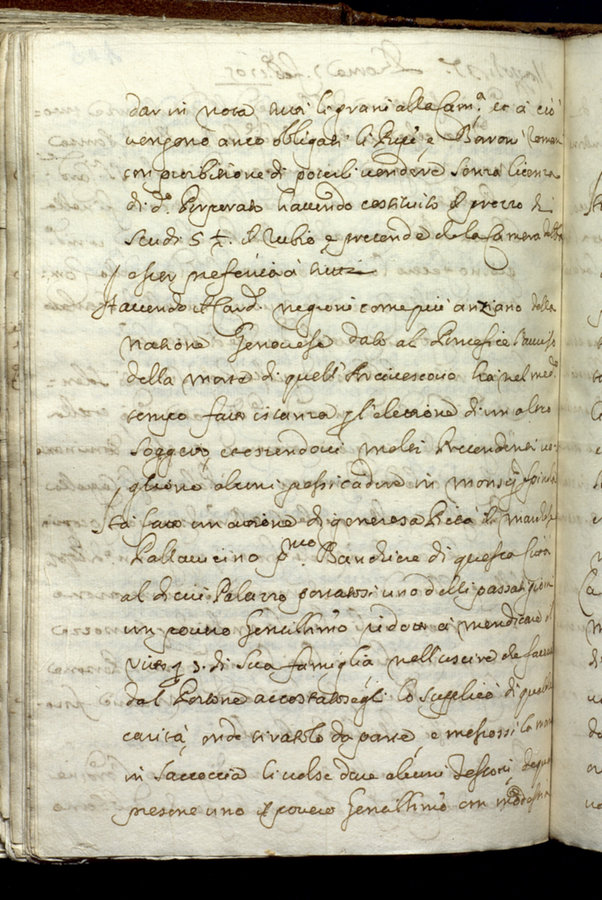 dar in nota tutti li grani alla Cam.ª et a ciò
vengono anco obligati li Prpi e Baroni Romani
con proibitione di poterli vendere senza licenza
di d.º havendo costituito il prezzo di
scudi 5 ½ il Rubio e pretende che la Camera
a tutti
Havendo il Card. negroni come più anziano della
natione Genovese dato al Pontefice l'avviso
della morte di quell'Arcivescovo ha nel med.º
tempo fatto istanza p l'elettione di un altro
soggetto et essendovi molti Pretendenti vo-
gliono alcuni possi cadere in monsig.r Spinola
Ha fatto un attione di generosa Pietà il march.
Pallavicino Banchiere di questa Città
al di cui Palazzo portatosi uno delli passati giorni
un povero Gentilhuomo ridotto a mendicare il
vitto p 3. di sua famiglia nell'uscire che faceva
dal Portone accostatosegli lo supplicò di qualche
carità, onde tiratolo da parte e messossi la mano
in saccoccia li volse dare alcuni Testoni, de quali
presone uno il povero Gentilhuomo con